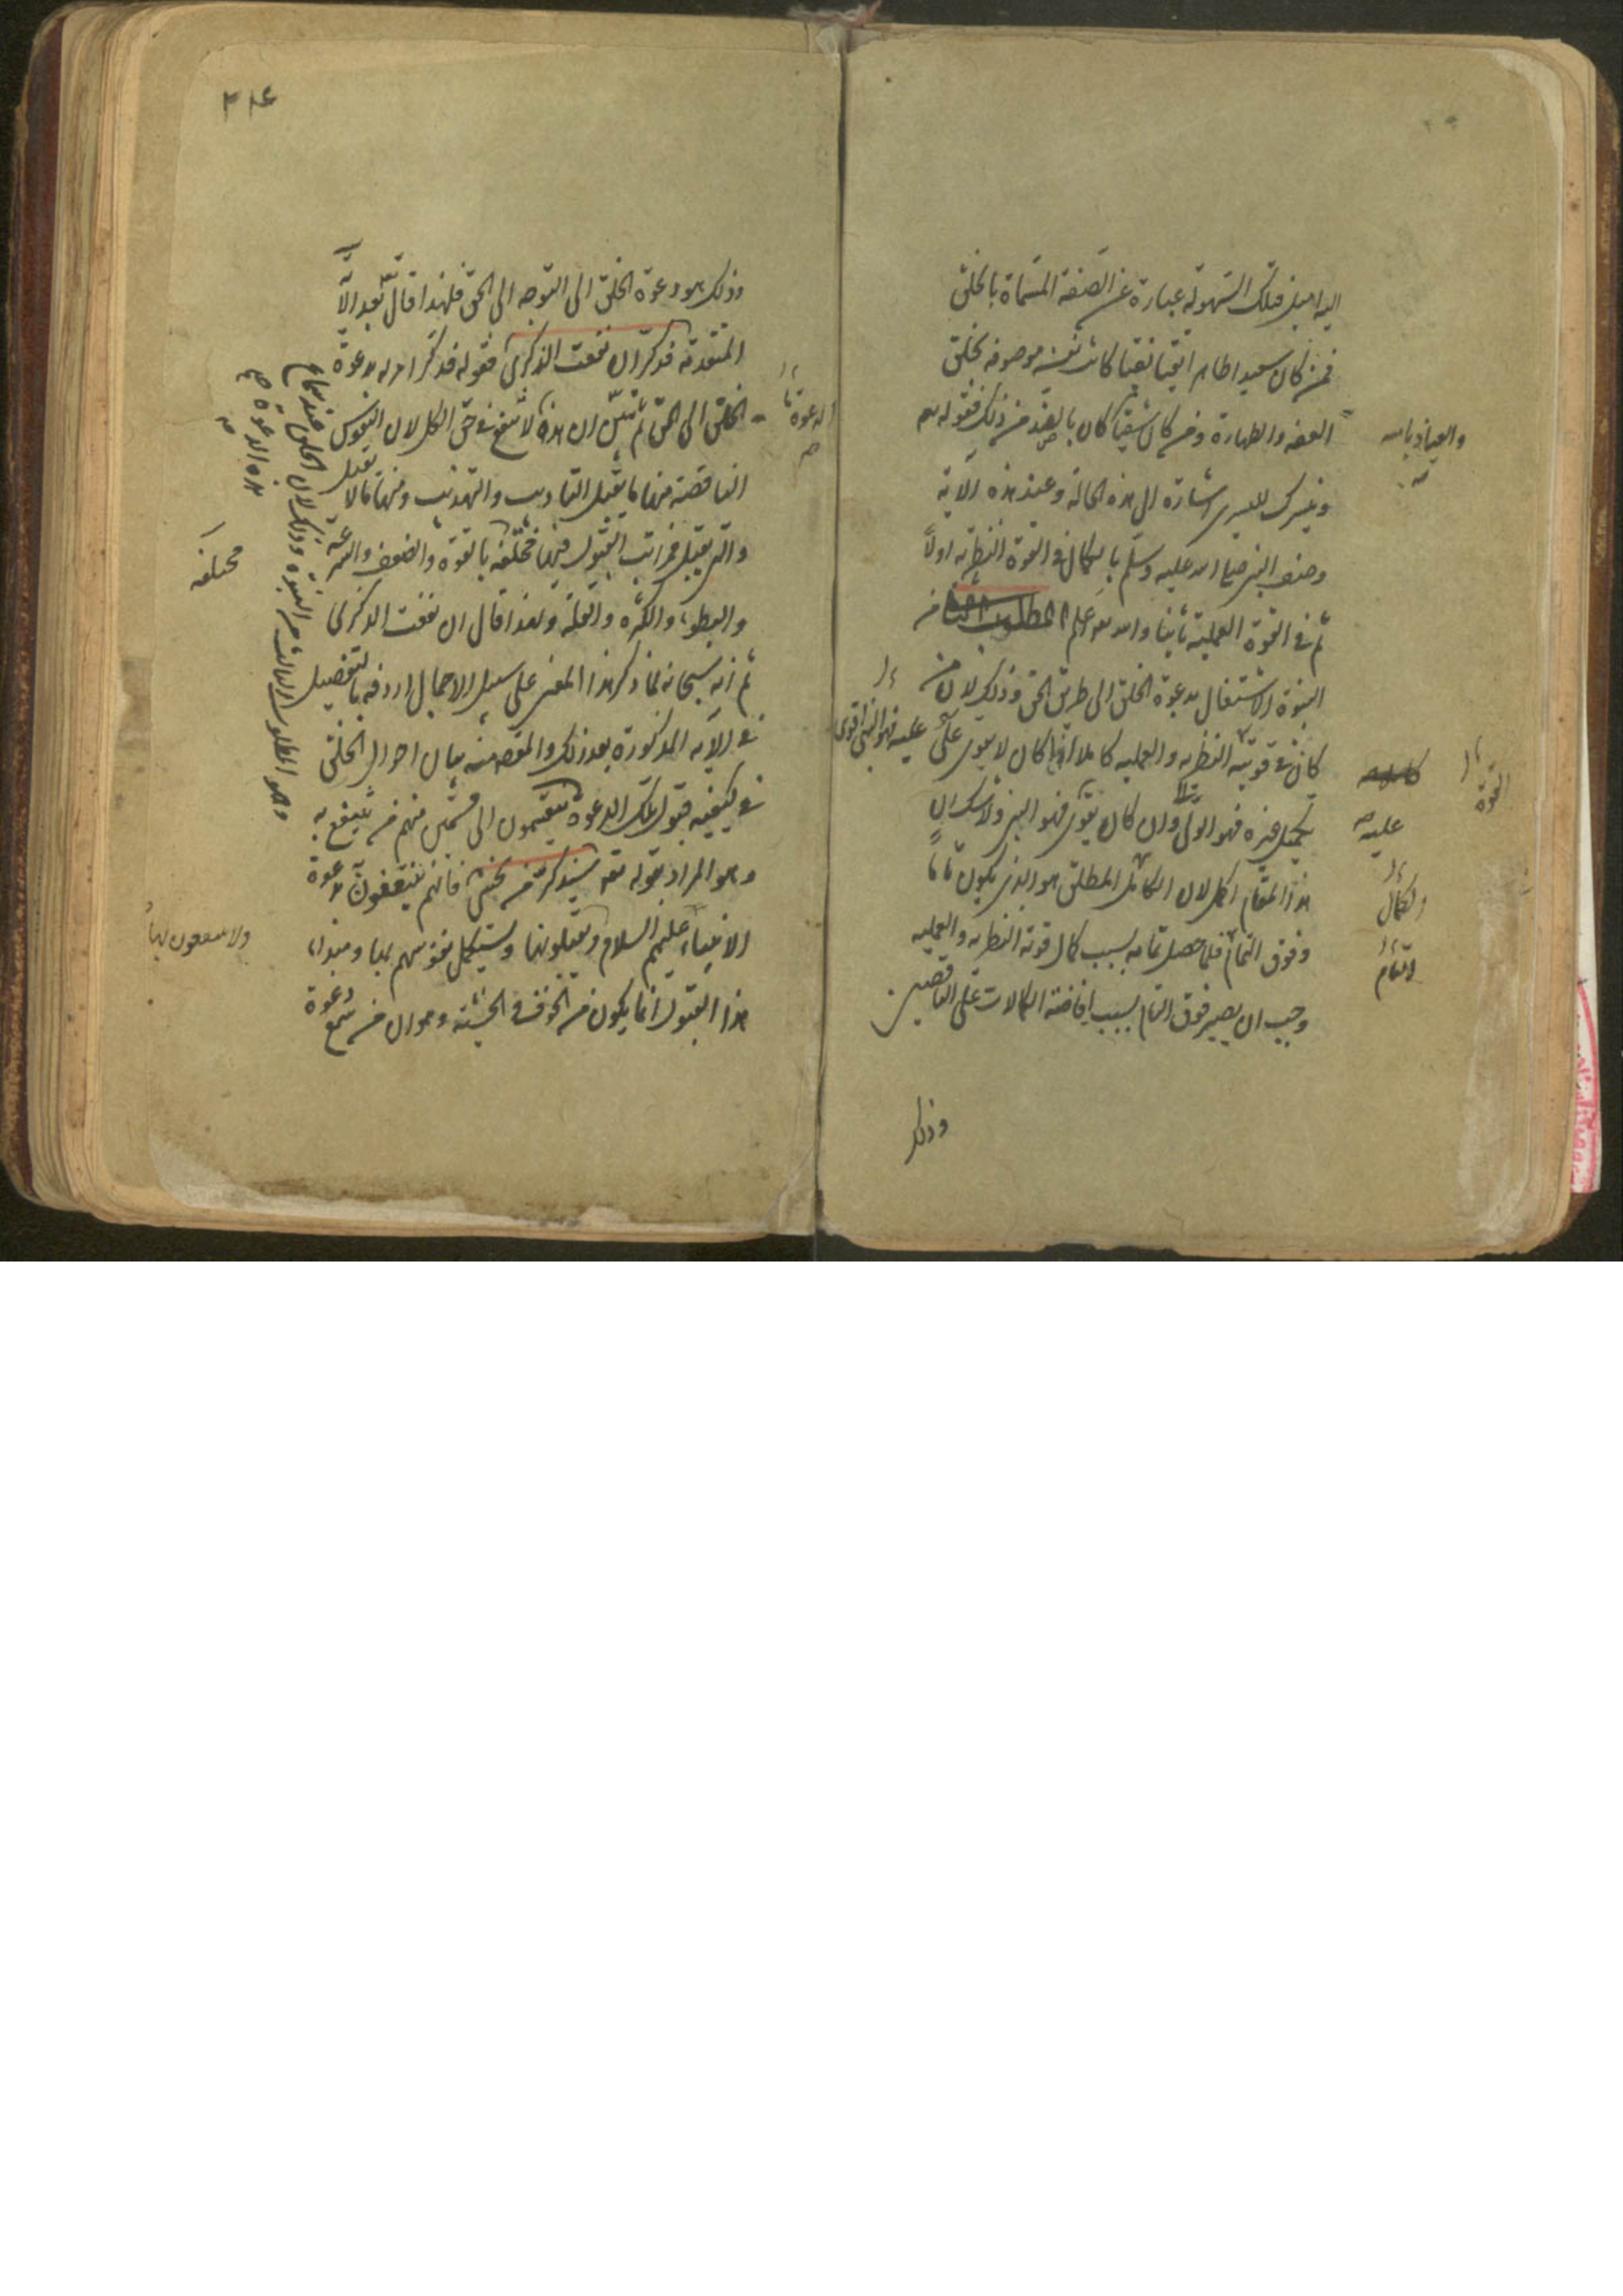 اليه اميل فتلك السهولة عبارة عن الصفة المسماة بالخلق
فمن كان سعيدا طاهرا تقيا نقيا كانت نفسه موصوفة بخلق
العفة والطهارة ومن كان شقيا كان بالضد من ذلك فقوله تعه
والعياذ بالله
ونيسرك لليسرى اشارة الى هذه الحالة وعند هذه الآية
وصف النبى صلى الله عليه وسلم بالكمال فى القوة النظرية اولاً
ثم فى القوة العملية ثانيا والله تعه اعلم المطلوب الثالث من
النبوة الاشتغال بدعوة الخلق الى طريق الحق وذلك لان من
كان فى قوتيه النظرية والعملية كاملا اذا كان لا يقوى على
القوة
عليه فهو النبى اقوى
تكميل غيره فهو الولى وان كان يقوى فهو النبى ولا شك ان
عليه
هذا المقام اكمل لان الكامل المطلق هو الذى يكون تاما
والكمال
وفوق التمام فلما حصل تمامه بسبب كمال قوته النظرية والعملية
التمام
وجب ان يصير فوق التمام بسبب افاضة الكمالات على الناقصين
وذلك
٣١٤
وذلك هو دعوة الخلق الى التوجه الى الحق فلهذا قال تعه بعد الآية
المتقدمة فذكر ان نفعت الذكرى فقوله فذكر امر له بدعوة
الخلق الى الحق ثم بين ان هذه لا تنفع فى حق الكل لان النفوس
الدعوة
الناقصة منها ما يقبل التاديب والتهذيب ومنها ما لا يقبل
والتى تقبل فمراتب القبول فيها مختلفة بالقوة والضعف والسرعة
مختلفة
والبطوء والكثرة والقلة ولهذا قال ان نفعت الذكرى
ثم انه سبحانه لما ذكر هذا المعنى على سبيل الاجمال اردفه بالتفصيل
فى الآية المذكورة بعد ذلك والمقصد منه بيان احوال الخلق
فى كيفية قبول تلك الدعوة ينقسمون الى قسمين منهم من ينتفع به
وهو المراد بقوله تعه سيذكر من يخشى فانهم ينتفعون بدعوة
الانبياء عليهم السلام ويقبلونها ويستكمل نفوسهم بها ومبدأ
ولا ينتفعون بها
هذا القبول انما يكون من الخوف والخشية وهو ان من سمع دعوة
وهو المطلوب الثالث من النبوة وذلك لان الخلق عند سماع
هذه الدعوة